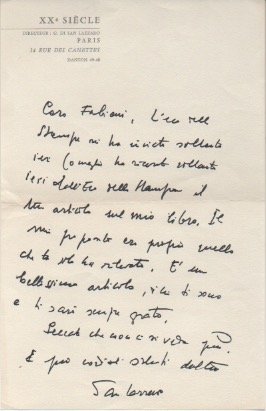 XXe SIÈCLE
DIRECTEUR : G. DI SAN LAZZARO
PARIS
14 RUE DES CANETTES
DANTON 49-46
Caro Fabiani, L'Eco della
Stampa mi ha inviato soltanto
ieri (o meglio ho ricevuto soltanto
ieri dall'Eco della Stampa il
tuo articolo sul mio libro. Il
mi proponevo era proprio quello
che tu hai rilevato. E' un
bellissimo articolo, e ti sono
e ti sarò sempre grato.
Peccato che non ci si veda più.
E più cordiali saluti dal tuo
San Lazzaro